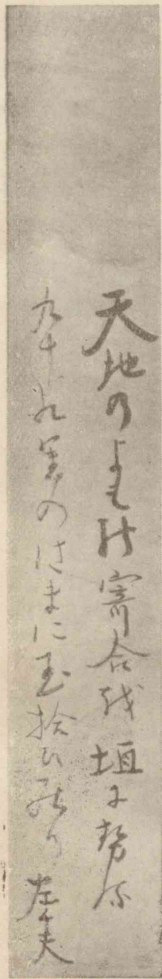 天地のよもの寄合越垣尓勢流
九十九里の者まに玉拾ひ居り 左千夫